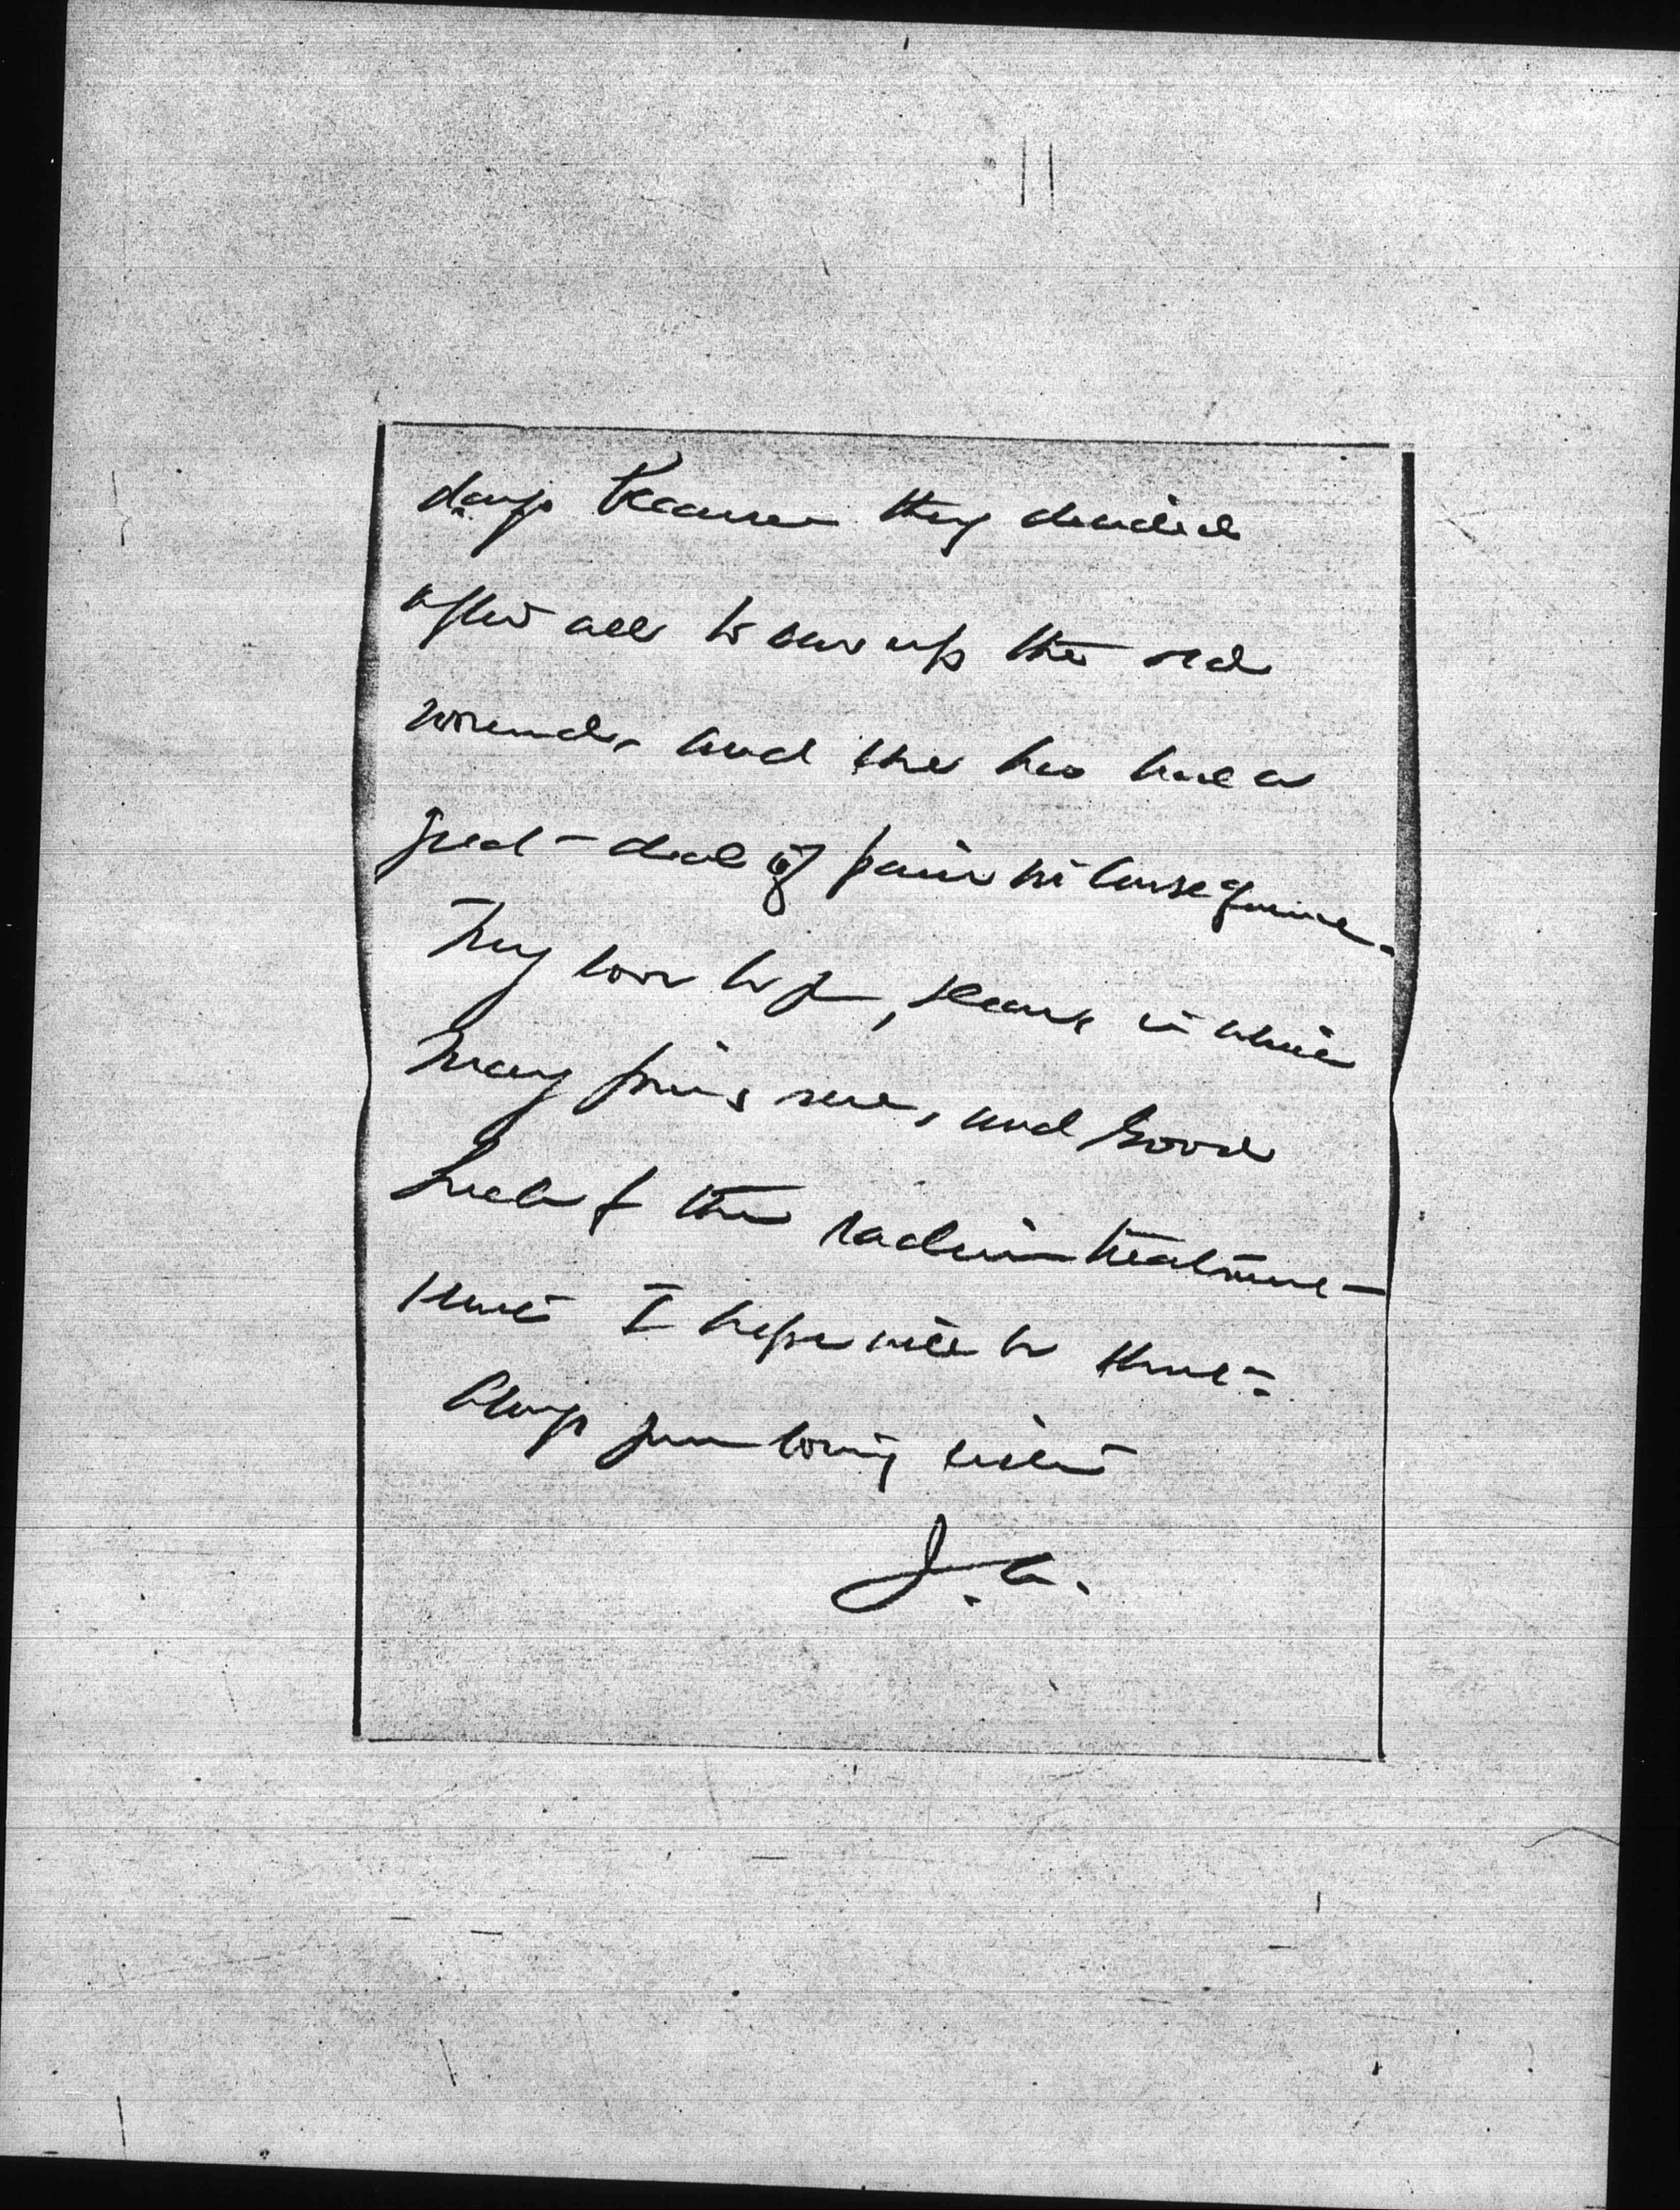 days because they decided
after all to sew up the old
wounds and she has had a
great deal of pain in consequence.
My love to you, please in which
Mary joins me, and good
luck to the radium treatment
which I hope will be there
Always your loving sister
J.A.